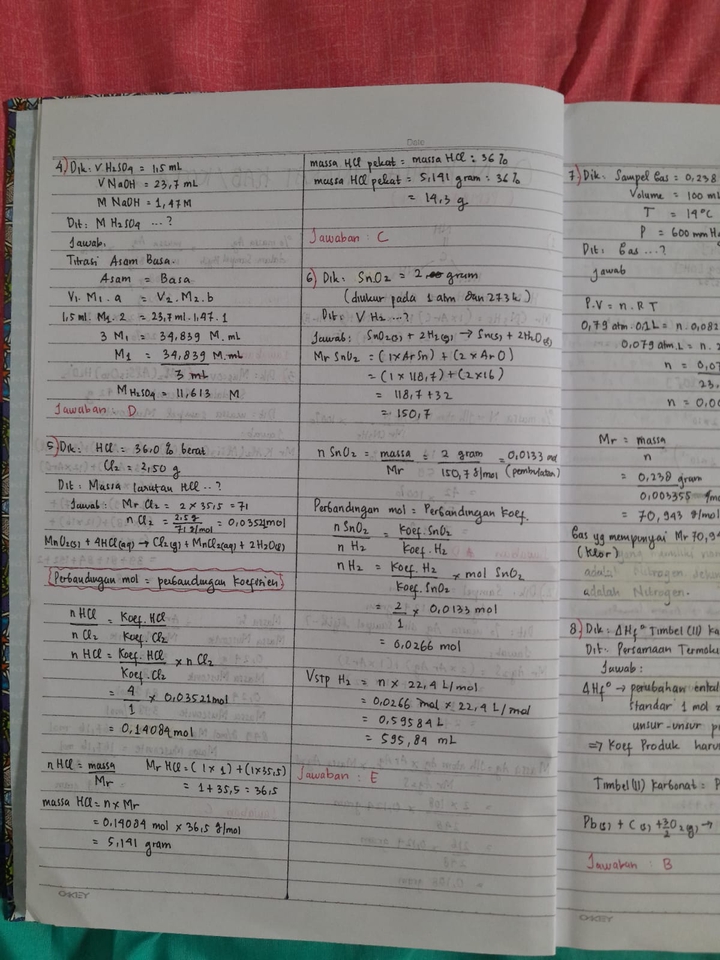 Date
4) Dik: V H2SO4 = 1,5 mL
V NaOH = 23,7 mL
M NaOH = 1,47 M
Dit: M H2SO4 ...?
Jawab.
Titrasi Asam Basa.
Asam = Basa
V1. M1. a = V2. M2. b
1,5 ml. M1. 2 = 23,7 ml. 1,47. 1
3 M1 = 34,839 M. mL
M1 = 34,839 M.mL
3 mL
M H2SO4 = 11,613 M
Jawaban = D
5) Dik: HCl = 36,0 % berat
Cl2 = 2,50 g
Dit: Massa larutan HCl ..?
Jawab: Mr Cl2 = 2 x 35,5 = 71
n Cl2 = 2,5 g / 71 g/mol = 0,0352 mol
MnO2(s) + 4HCl(aq) → Cl2(g) + MnCl2(aq) + 2H2O(l)
[Perbandingan mol = perbandingan koefisien]
n HCl = Koef. HCl
n Cl2 Koef. Cl2
n HCl = Koef. HCl x n Cl2
Koef. Cl2
= 4 x 0,03521 mol
1
= 0,14084 mol
n HCl = massa Mr HCl = (1 x 1) + (1x35,5)
Mr = 1 + 35,5 = 36,5
massa HCl = n x Mr
= 0,14084 mol x 36,5 g/mol
= 5,141 gram
OKEY
massa HCl pekat = massa HCl : 36 %
massa HCl pekat = 5,141 gram : 36 %
= 14,3 g
Jawaban : C
6) Dik: SnO2 = 2 gram
(diukur pada 1 atm dan 273 k)
Dit: V H2 ...?
Jawab: SnO2(s) + 2H2(g) → Sn(s) + 2H2O(l)
Mr SnO2 = (1 x Ar Sn) + (2 x Ar O)
= (1 x 118,7) + (2x16)
= 118,7 + 32
= 150,7
n SnO2 = massa = 2 gram = 0,0133 mol
Mr 150,7 g/mol (pembulatan)
Perbandingan mol = Perbandingan Koef.
n SnO2 = Koef. SnO2
n H2 Koef. H2
n H2 = Koef. H2 x mol SnO2
Koef. SnO2
= 2 x 0,0133 mol
1
= 0,0266 mol
Vstp H2 = n x 22,4 L/mol
= 0,0266 mol x 22,4 L/mol
= 0,59584 L
= 595,84 mL
Jawaban : E
7) Dik: Sampel Gas = 0,238
Volume = 100 mL
T = 14°C
P = 600 mm H
Dit: Gas ...?
Jawab
P.V = n. R T
0,79 atm. 0,1 L = n. 0,082
0,079 atm.L = n. 2
n = 0,07
23,
n = 0,00
Mr = massa
n
= 0,238 gram
0,003355 g/mo
= 70,943 g/mol
Gas yg mempunyai Mr 70,9
(Klor)
adalah Nitrogen.
8) Dik: ΔHf° Timbel (II) ka
Dit: Persamaan Termok
Jawab:
ΔHf° → perubahan ental
standar 1 mol z
unsur-unsur p
=> Koef Produk haru
Timbel(II) Karbonat = P
Pb(s) + C(s) + 3/2 O2(g) →
Jawaban : B
OKEY